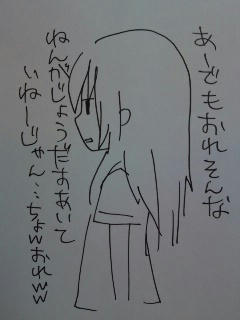 あーでもおれそんな
ねんがじょうだすあいて
いねーじゃん…ちょwおれww